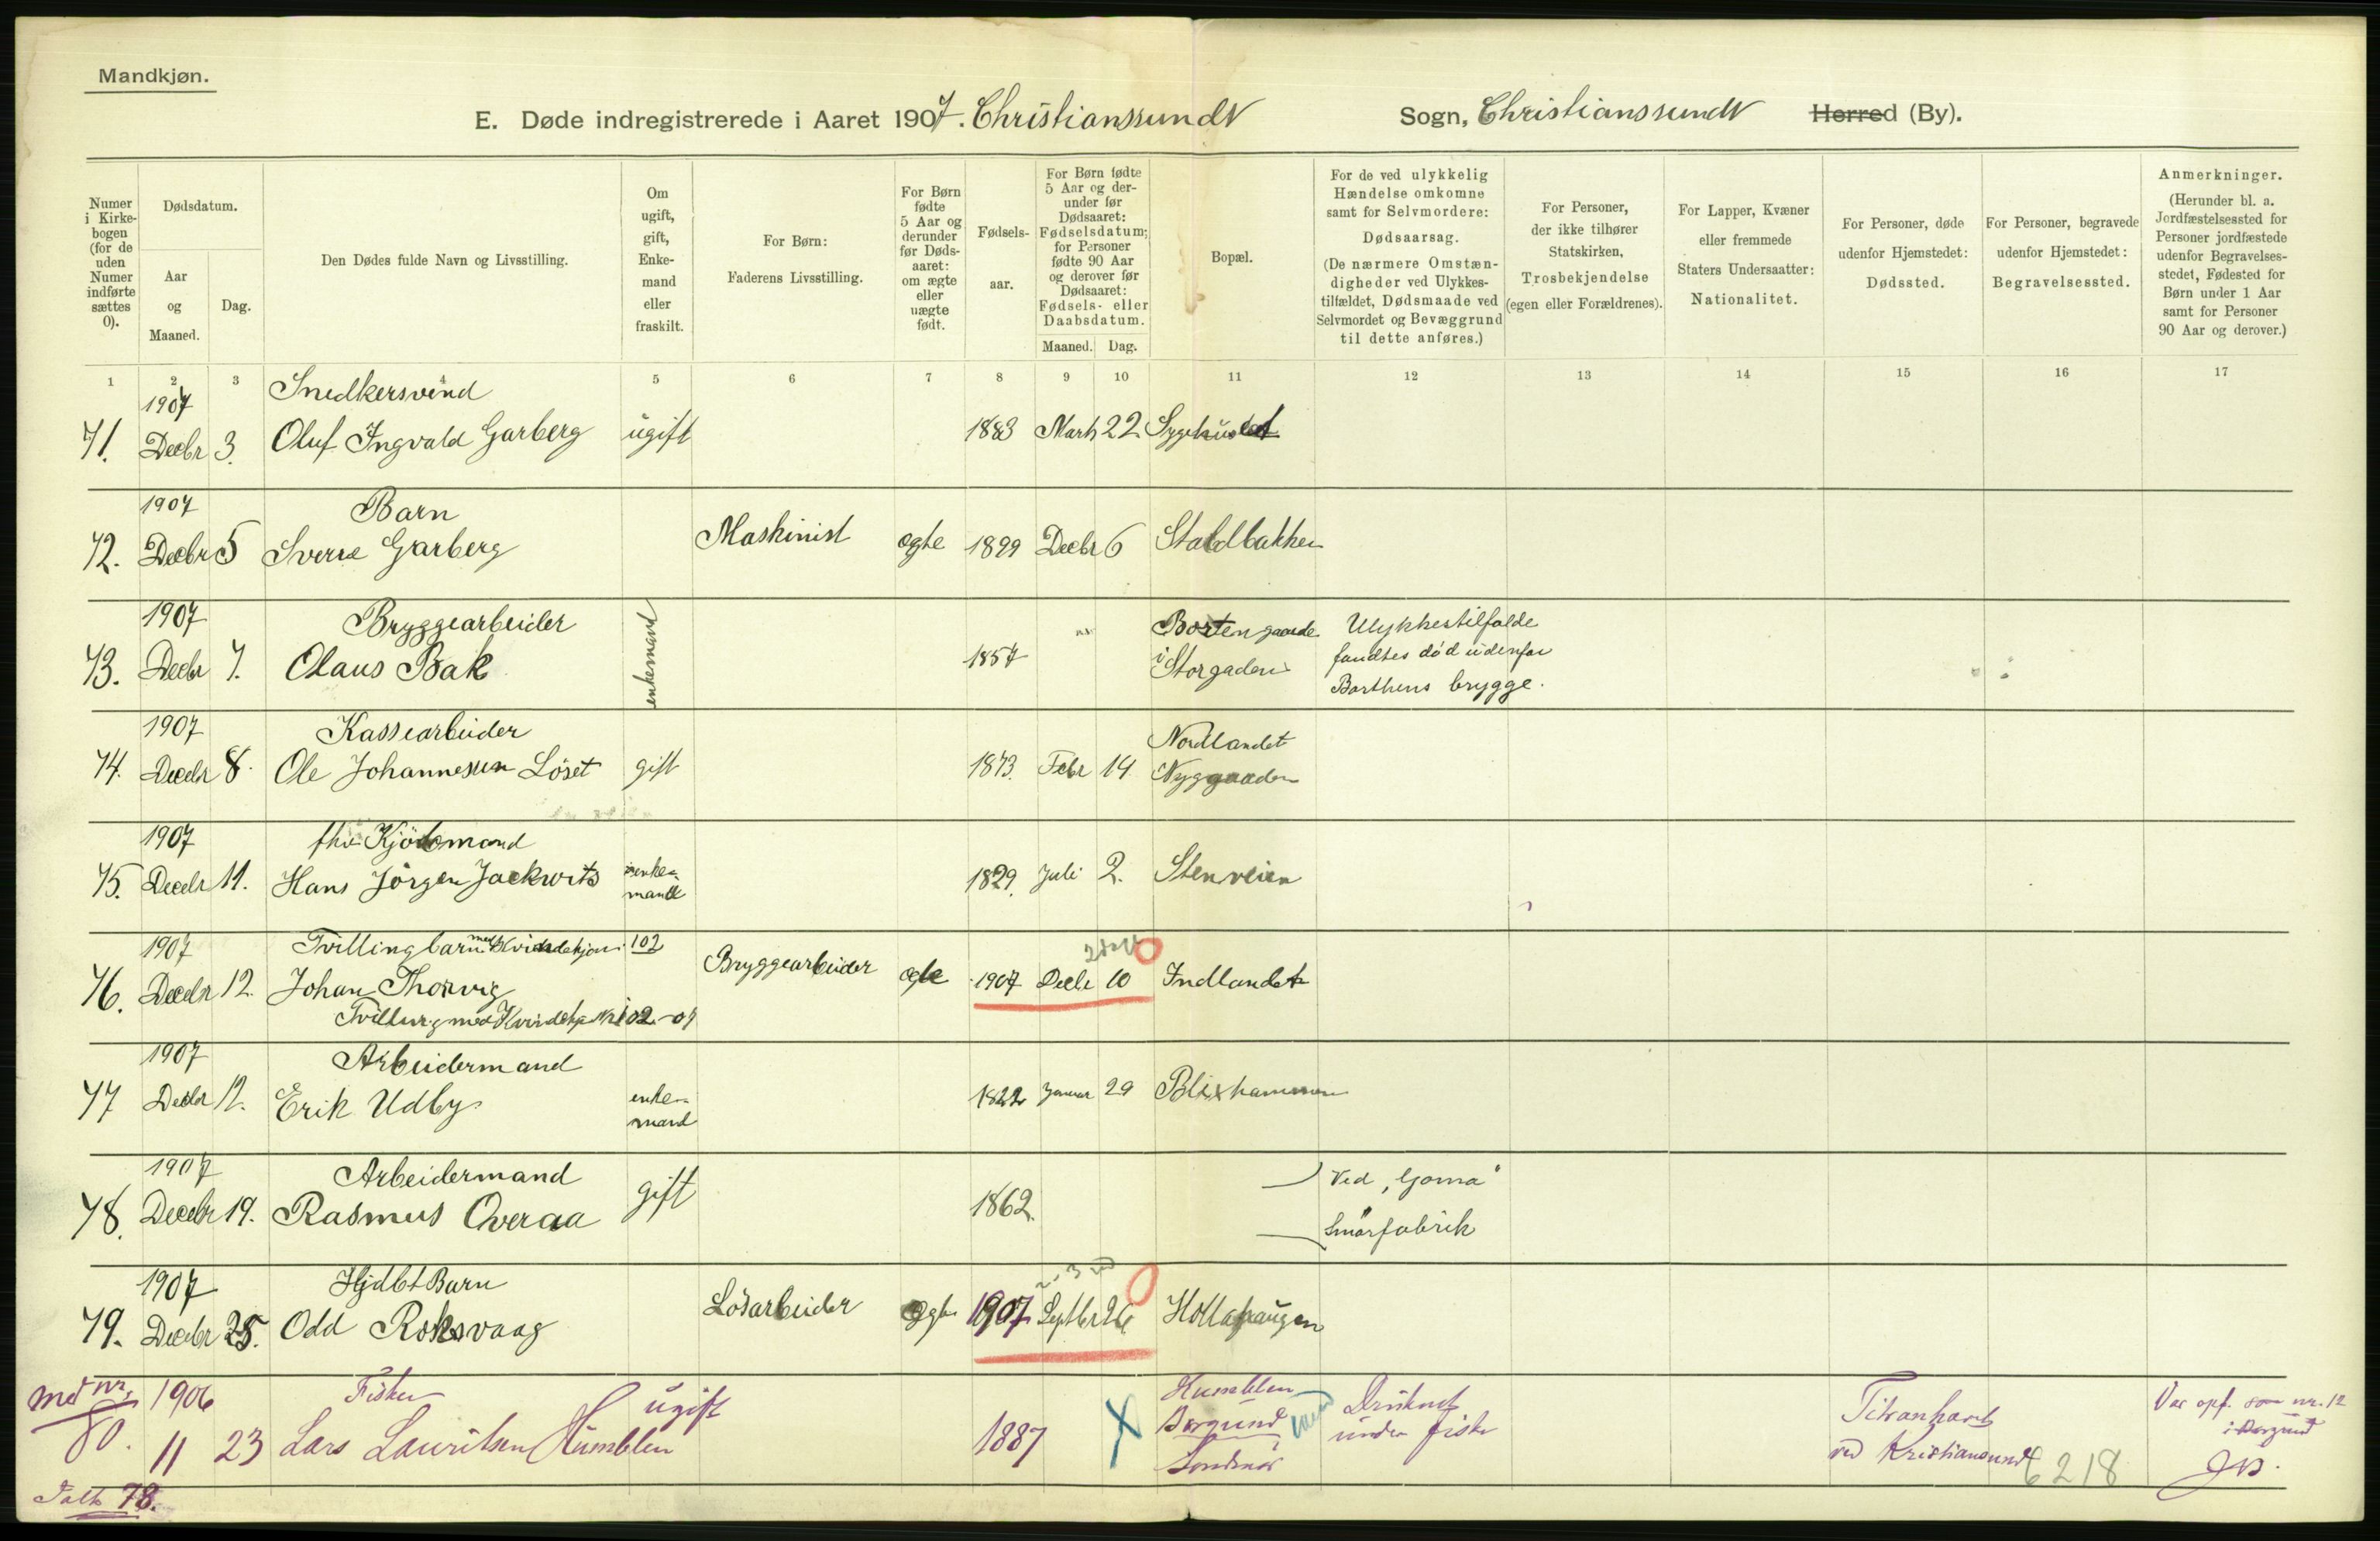 Mandkjøn.
E. Døde indregistrerede i Aaret 1907. Christianssund Sogn, Christianssund Herred (By).
Numer i Kirkebogen (for de uden Numer indførte sættes 0).
Dødsdatum.
Aar og Maaned.
Dag.
Den Dødes fulde Navn og Livsstilling.
Om ugift, gift, Enkemand eller fraskilt.
For Børn: Faderens Livsstilling.
For Børn fødte 5 Aar og derunder før Dødsaaret: om ægte eller uægte født.
Fødselsaar.
For Børn fødte 5 Aar og derunder før Dødsaaret: Fødselsdatum; for Personer fødte 90 Aar og derover før Dødsaaret: Fødsels- eller Daabsdatum.
Maaned. Dag.
Bopæl.
For de ved ulykkelig Hændelse omkomne samt for Selvmordere: Dødsaarsag. (De nærmere Omstændigheder ved Ulykkestilfældet, Dødsmaade ved Selvmordet og Bevæggrund til dette anføres.)
For Personer, der ikke tilhører Statskirken, Trosbekjendelse (egen eller Forældrenes).
For Lapper, Kvæner eller fremmede Staters Undersaatter: Nationalitet.
For Personer, døde udenfor Hjemstedet: Dødssted.
For Personer, begravede udenfor Hjemstedet: Begravelsessted.
Anmerkninger. (Herunder bl. a. Jordfæstelsessted for Personer jordfæstede udenfor Begravelsesstedet, Fødested for Børn under 1 Aar samt for Personer 90 Aar og derover.)
1 2 3 4 5 6 7 8 9 10 11 12 13 14 15 16 17
1907 Snedkersvend
71. Decbr 3. Oluf Ingvald Garberg ugift 1883 Marts 22 Sygehuset
1907 Barn
72. Decbr 5 Sverre Garberg Maskinist ægte 1899 Decbr 6 Staldbakken
1907 Bryggearbeider enkemand Bortengaarde Ulykkestilfælde
73. Decbr 7. Olaus Bak 1857 i Storgaden fandtes død udenfor
Barthens brygge.
1907 Kassearbeider Nordlandet
74. Decbr 8. Ole Johannesen Löset gift 1873. Febr 14 Nyggaaden
1907 fhv Kjöbmand
75. Decbr 11. Hans Jörgen Jackwits enkemand 1829. Juli 2. Stenveien
1907 Tvillingbarn med Kvindekjøn 102
76. Decbr 12. Johan Thorvig Bryggearbeider ægte 1907 Decbr 10 Indlandet
Tvilling med Kvindekj. Nr 102-07
1907 Arbeidermand
77 Decbr 12. Erik Udby enkemand 1822 Januar 29 Blixhammeren
1907 Arbeidermand Ved "Goma"
78. Decbr 19. Rasmus Overaa gift 1862. Smørfabrik
1907 Hjdbt Barn
79. Decbr 25. Odd Roksvaag Lösarbeider ægte 1907 Septbr 26 Hollahaugen
med nr. 1906 Fisker ugift Humblen Druknet Titranhavet Var opf. som nr. 12
80. 11 23 Lars Lauritsen Humblen 1887 Borgund under fiske ved Kristiansund i Borgund
Søndmør 6218
Talt 78.